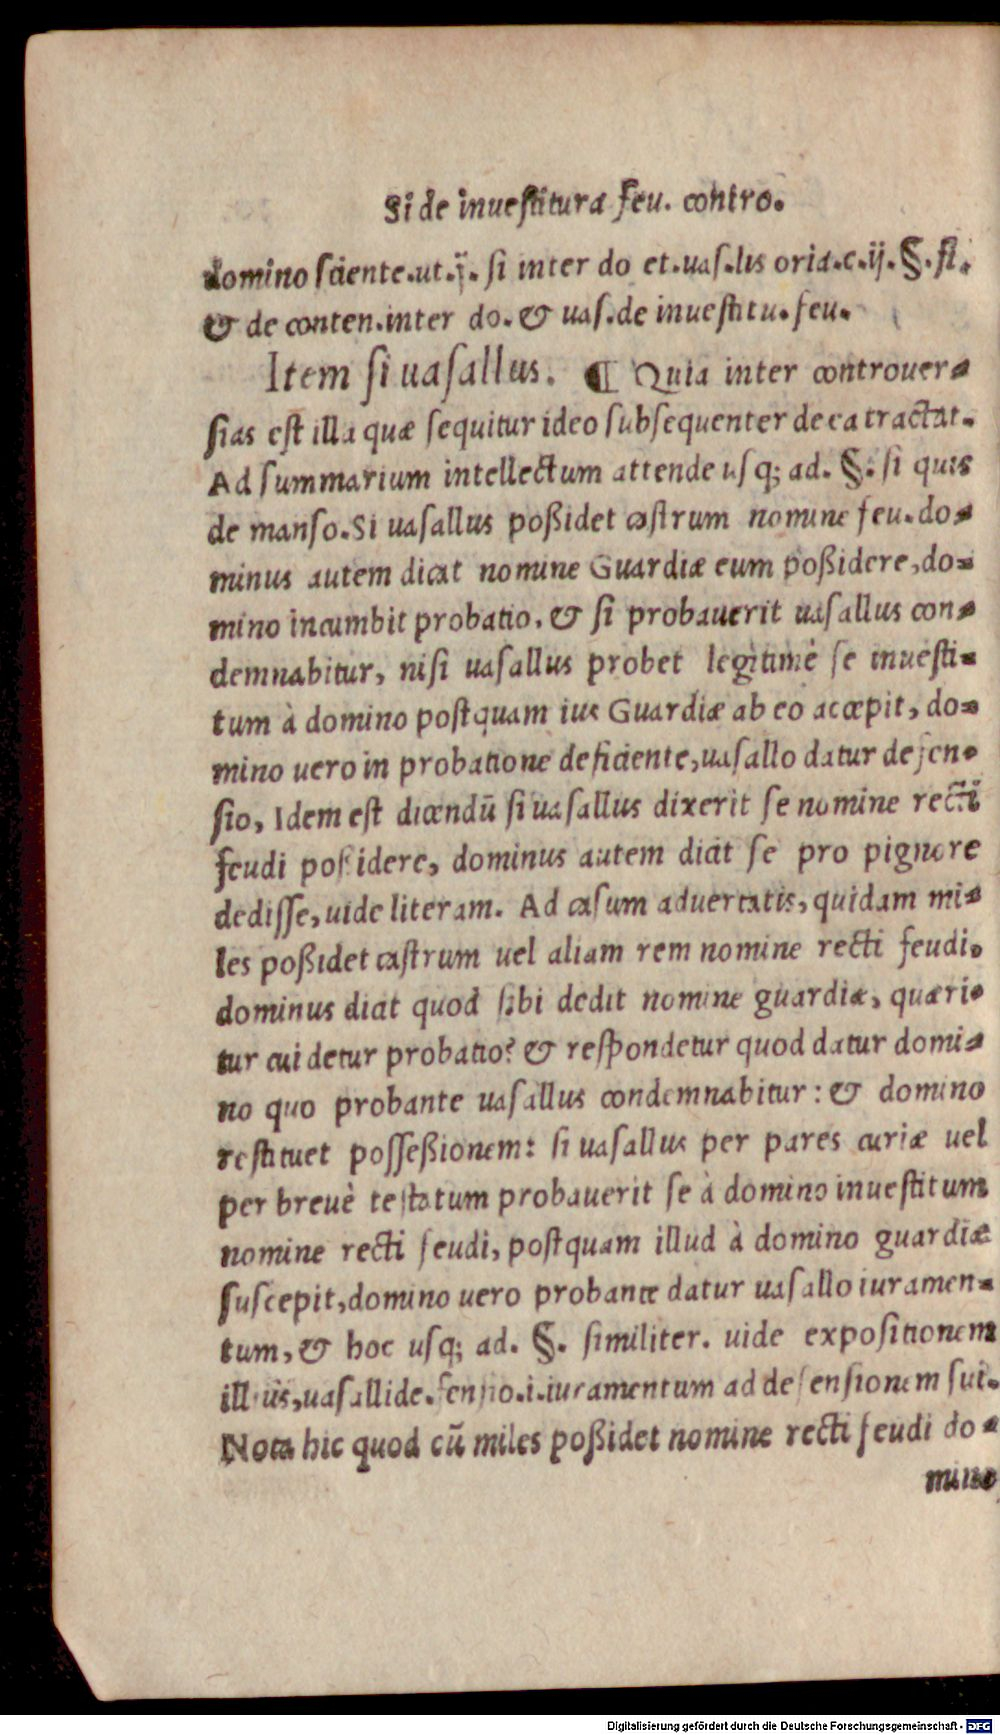 Si de inuestitura feu. contro.
domino sciente.ut.ȷ̃. si inter do et.uas.lis oria.c.ij.§.fi.
& de conten.inter do.& uas.de inuestitu.feu.
Item si uasallus. ¶ Quia inter controuer-
sias est illa quæ sequitur ideo subsequenter de ea tractat.
Ad summarium intellectum attende usq; ad. §. si quis
de manso.Si uasallus poßidet castrum nomine feu.do-
minus autem dicat nomine Guardiæ eum poßidere,do-
mino incumbit probatio. & si probauerit uasallus con-
demnabitur, nisi uasallus probet legitimè se inuesti-
tum à domino postquam ius Guardiæ ab eo accepit, do-
mino uero in probatione deficiente,uasallo datur defen-
sio, Idem est dicendū si uasallus dixerit se nomine recti
feudi possidere, dominus autem dicit se pro pignore
dedisse,uide literam. Ad casum aduertatis,quidam mi-
les poßidet castrum uel aliam rem nomine recti feudi.
dominus dicit quod sibi dedit nomine guardiæ, quæri-
tur cui detur probatio? & respondetur quod datur domi-
no quo probante uasallus condemnabitur: & domino
restituet possessionem: si uasallus per pares curiæ uel
per breuè testatum probauerit se à domino inuestitum
nomine recti feudi, postquam illud à domino guardiæ
suscepit,domino uero probante datur uasallo iuramen-
tum, & hoc usq; ad. §. similiter. uide expositionem
illius,uasalli defensio.i.iuramentum ad defensionem sui.
Nota hic quod cū miles poßidet nomine recti feudi do-
mino
Digitalisierung gefördert durch die Deutsche Forschungsgemeinschaft - DFG